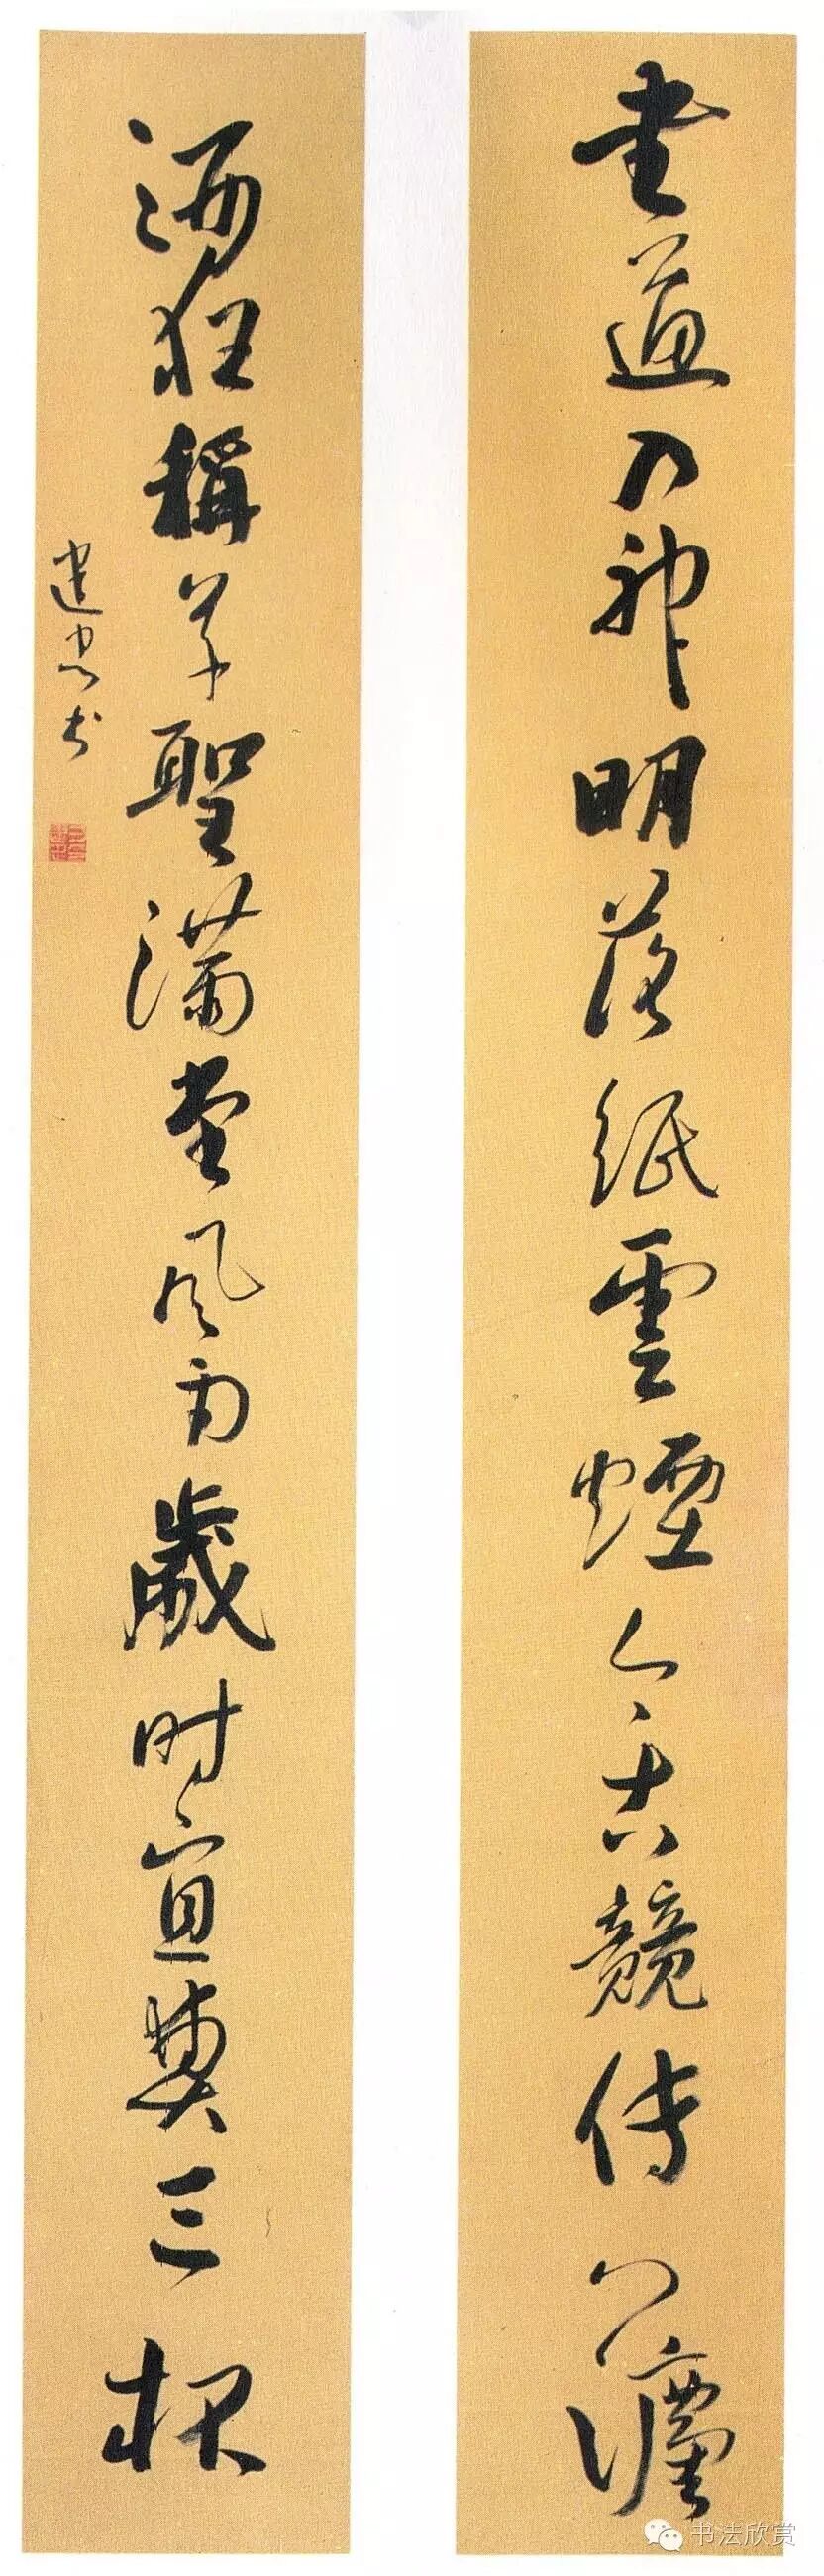 書道入神明落紙雲煙今古競傳八灋
酒狂稱草聖滿堂風雨歲時宜奠三杯
建忠书
书法欣赏